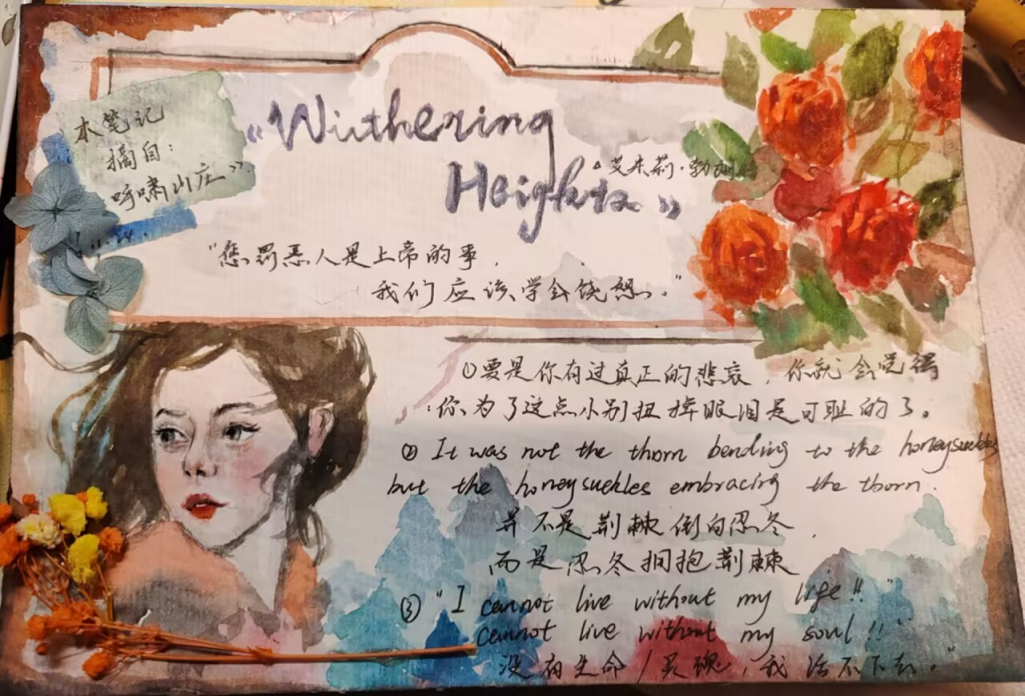 本笔记
摘自:
呼啸山庄
《Wuthering
Heights》
艾米莉·勃朗特
"惩罚恶人是上帝的事,
我们应该学会饶恕。"
①要是你有过真正的悲哀,你就会觉得
你为了这点小别扭掉眼泪是可耻的了。
② It was not the thorn bending to the honeysuckles
but the honeysuckles embracing the thorn.
并不是荆棘倒向忍冬,
而是忍冬拥抱荆棘
③ "I cannot live without my life!!
cannot live without my soul!!"
没有生命/灵魂,我活不下去。"